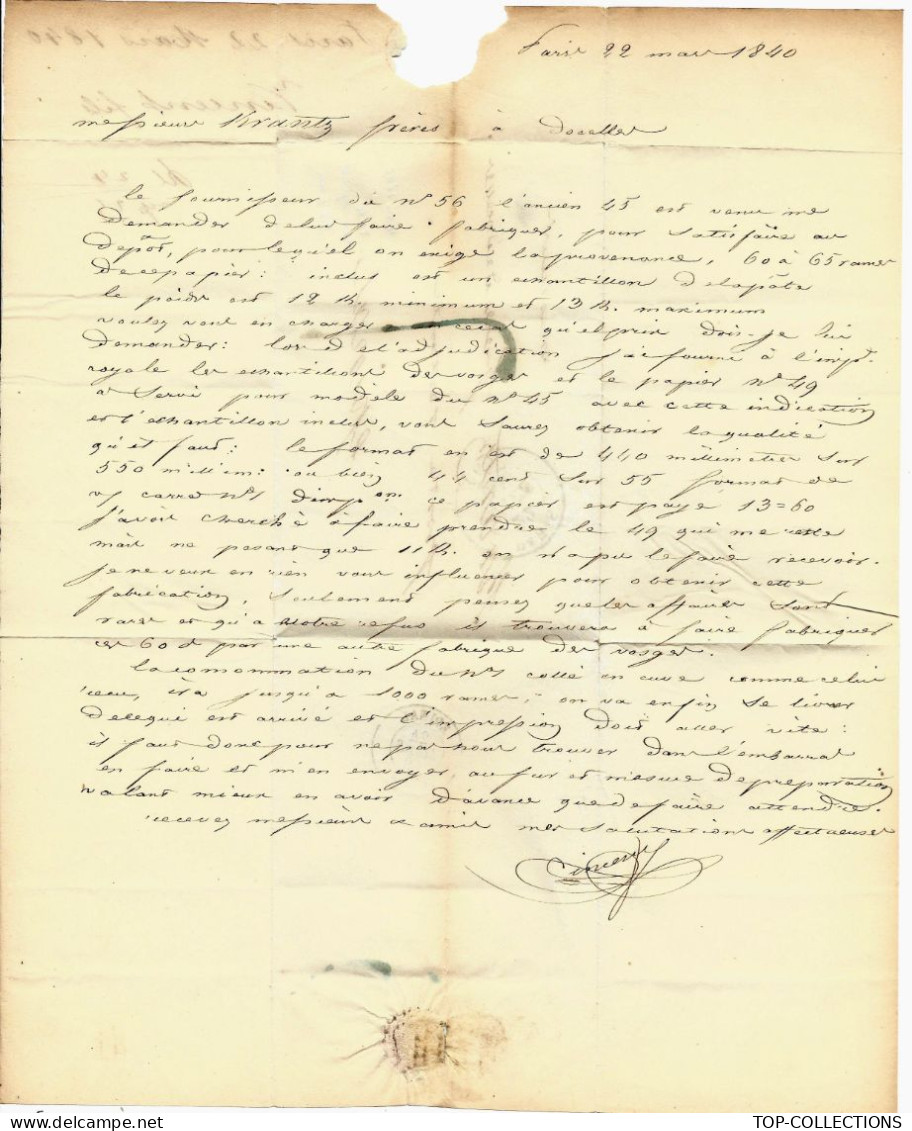 Paris 22 mars 1840
messieurs Krantz frères à Docelles
le fournisseur du N° 56 l'ancien 45 est venu me
demander de lui faire fabriquer, pour satisfaire au
depôt, pour lequel on exige la provenance, 60 a 65 rames
de ce papier: inclus est un echantillon de la pâte
le poids est 12 K. minimum et 13 K. maximum
voulez vous en charger en ce cas quel prix dois-je lui
demander: lors de l'adjudication j'ai fourni à l'imp.
royale les echantillons des vosges et le papier N° 49
a servi pour modèle du N° 45 avec cette indication
et l'echantillon inclus, vous saurez obtenir la qualité
qu'il faut: le format en est de 440 millimetres sur
550 millim: ou bien 44 cent sur 55 format de
carré ce papier est payé 13=60
j'avois cherché à faire prendre le 49 qui me reste
mais ne pesant que 11 K. on n'a pu le faire recevoir.
je ne veux en rien vous influencer pour obtenir cette
fabrication, seulement pensez que les affaires sont
rares et qu'a votre refus il trouvera à faire fabriquer
ces 60 r par une autre fabrique des vosges.
la consommation du collé en cuve comme celui
ira jusqu'a 1000 rames, on va enfin se livrer
delegué est arrivé et l'impression doit aller vite:
il faut donc pour ne pas nous trouver dans l'embarras
en faire et m'en envoyer, au fur et mesure de preparation
valant mieux en avoir d'avance que de faire attendre.
recevez messieurs & amis mes salutations affectueuses
Vincent
TOP-COLLECTIONS